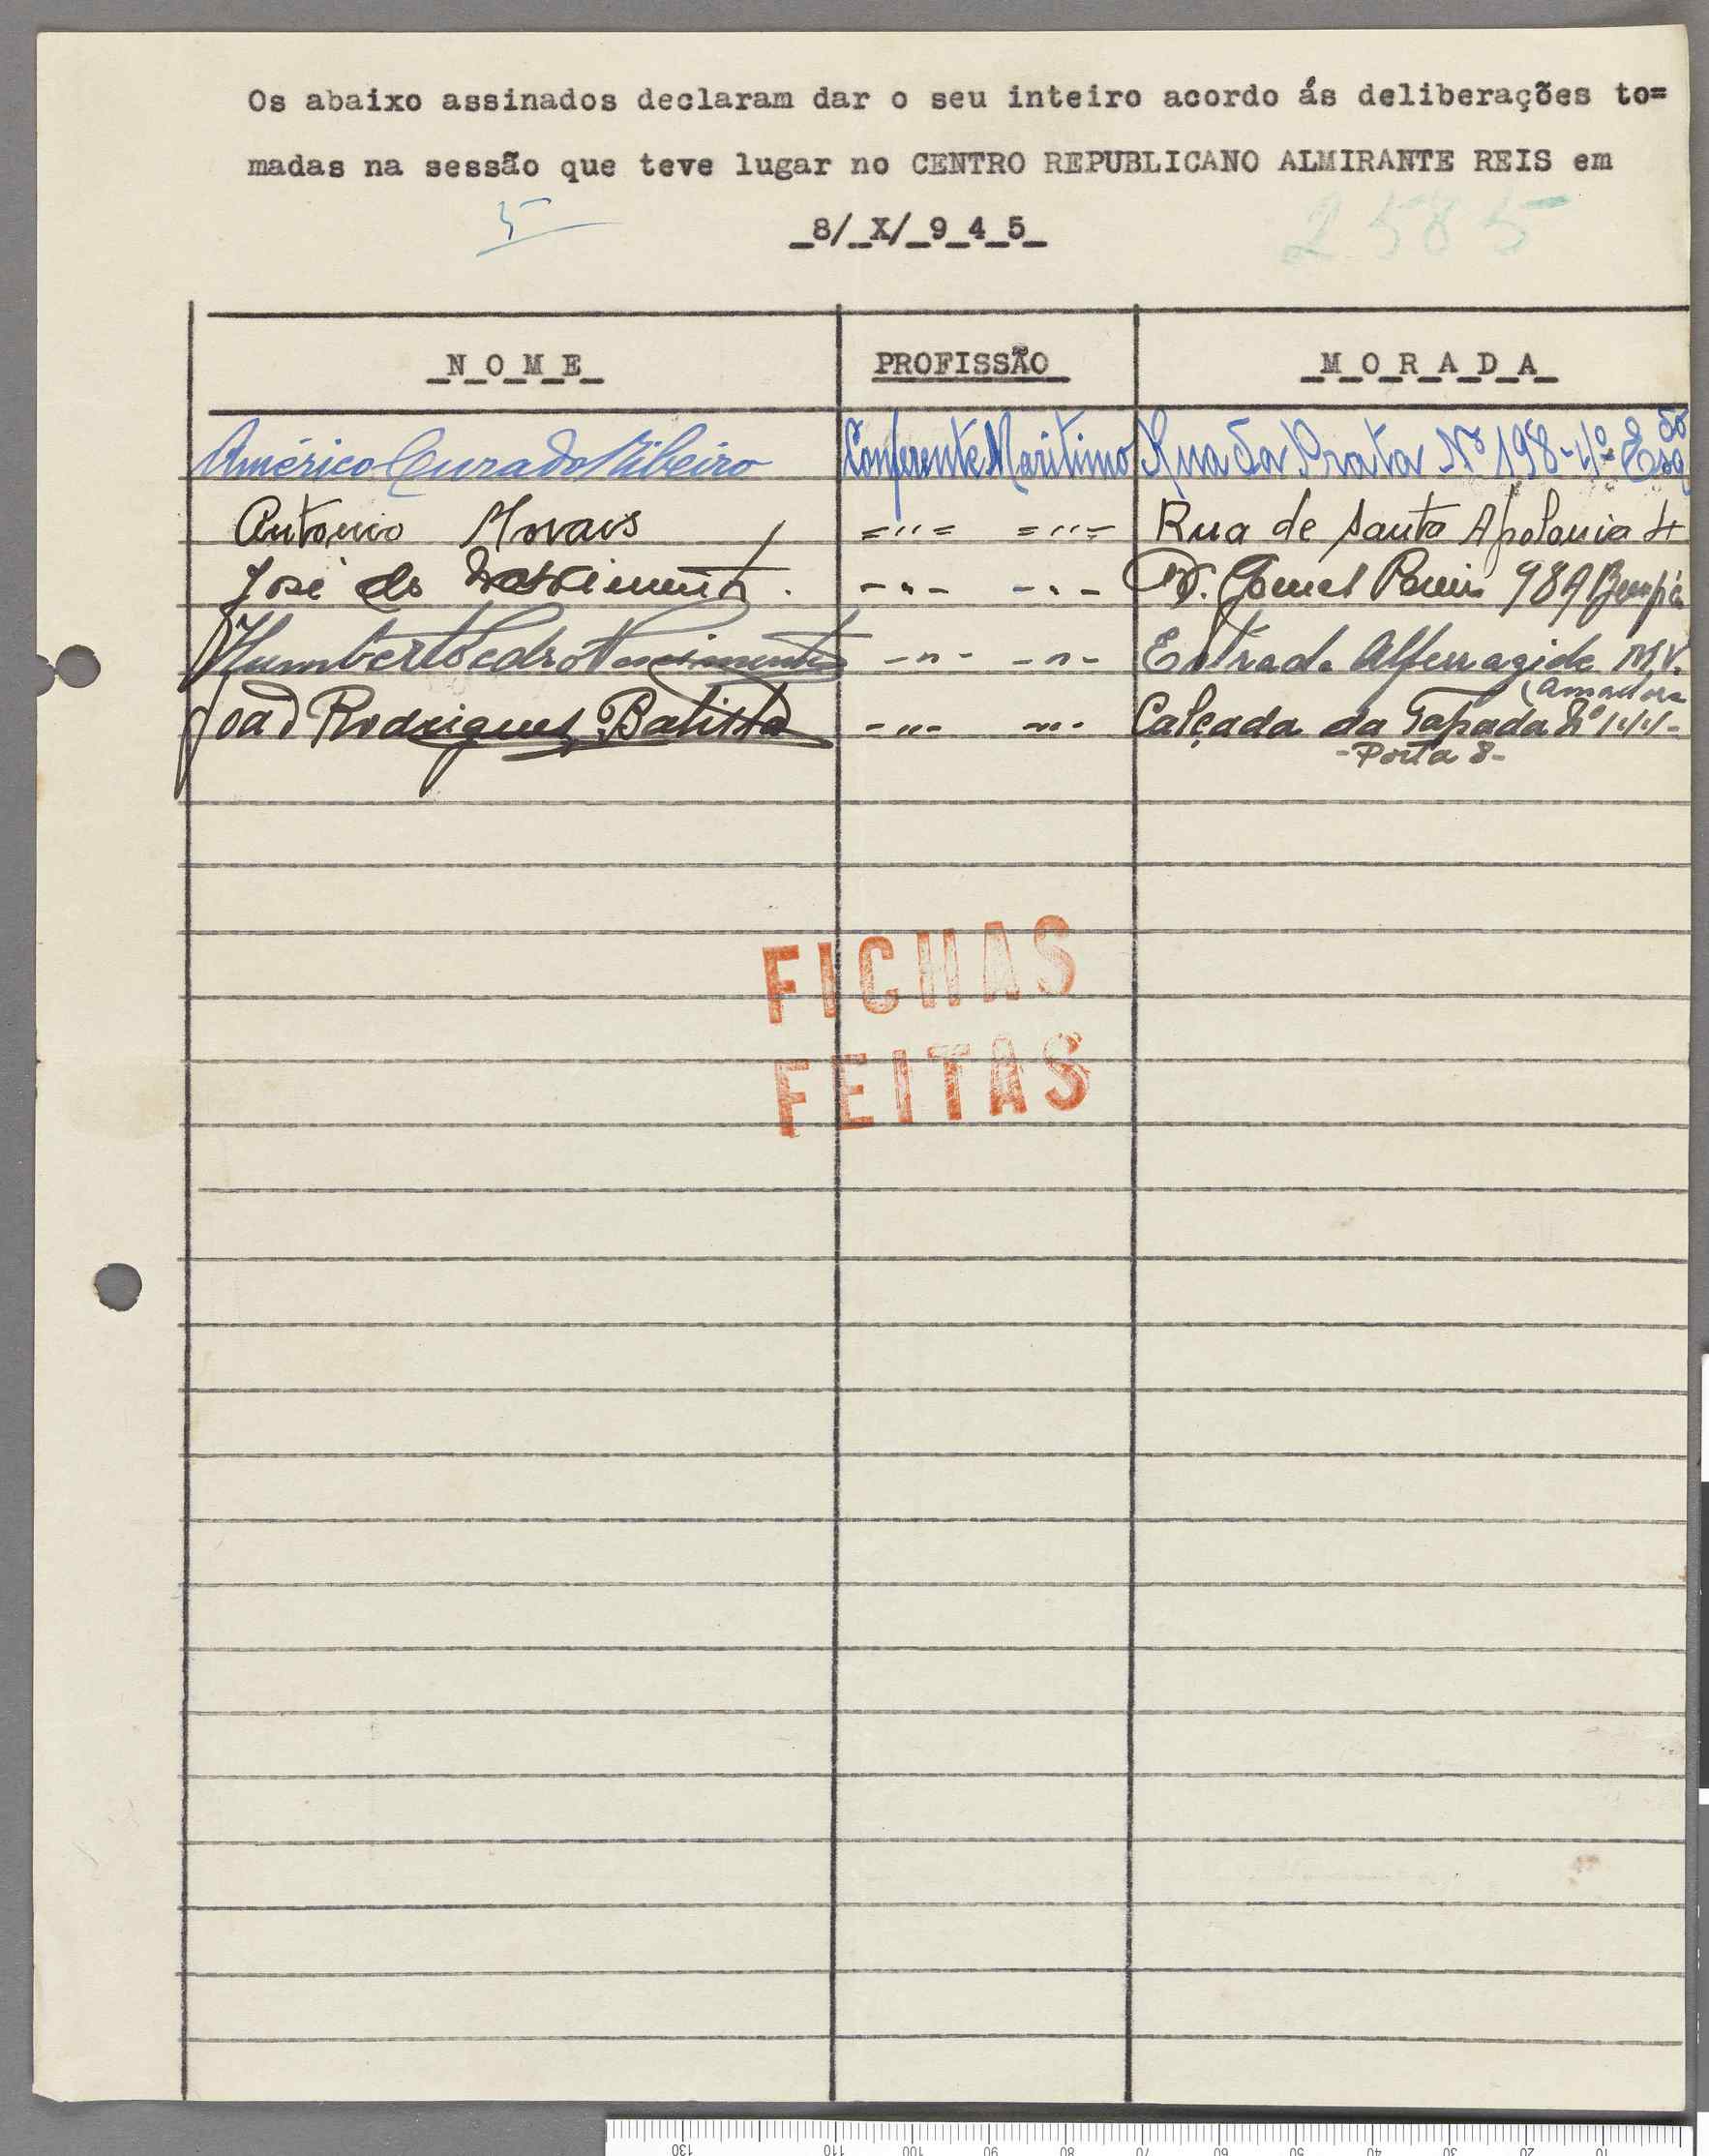 Os abaixo assinados declaram dar o seu inteiro acordo ás deliberações to=
madas na sessão que teve lugar no CENTRO REPUBLICANO ALMIRANTE REIS em
5
8/ X/ 9 4 5
2585
N O M E PROFISSÃO M O R A D A
Américo Curado Ribeiro Conferente Maritimo Rua da Prata Nº 198-4º Esqdo
Antonio Morais =〃= =〃= Rua de Santa Apolonia 4
José do Nascimento. -〃- -〃- R. Gomes 98A
Humberto Pedro Nascimento -〃- -〃- Estrada Alferragide M.V.
(Amadora
João Rodrigues Batista -〃- -〃- Calçada da Tapada Nº 144-
-Porta 8-
FICHAS
FEITAS
130 110 100 90 80 70 60 50 40 30 20 10